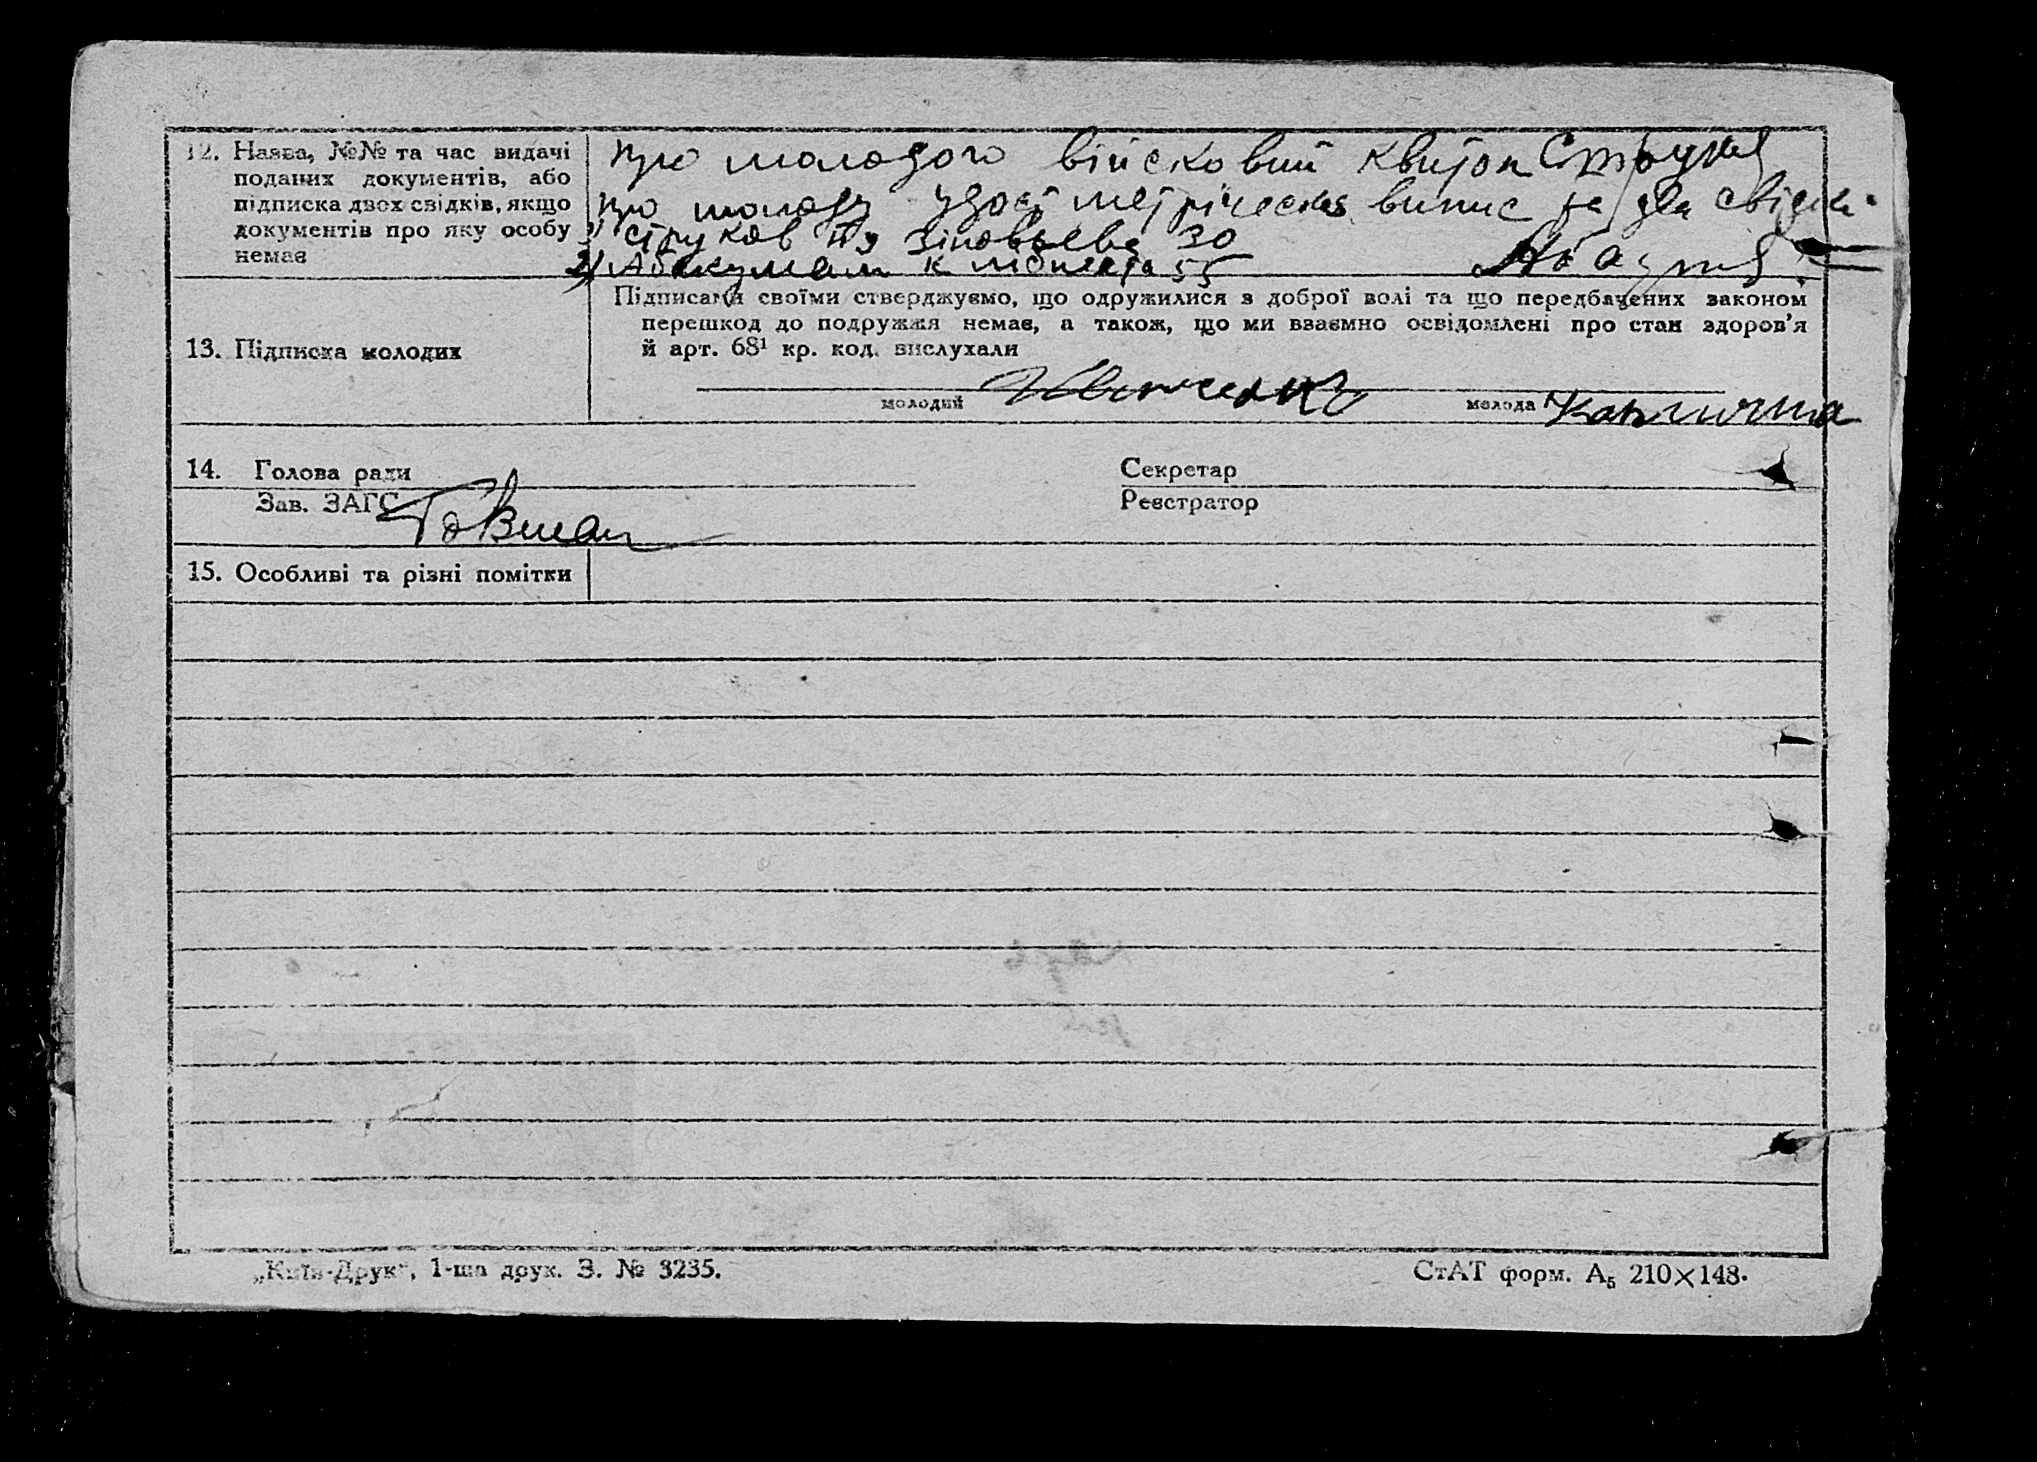 12. Назва, №№ та час видачі
поданих документів, або
підписка двох свідків, якщо
документів про яку особу
немає
про молодого військовий квиток
про молоду удост метрическая випис та два свідки
1) Струков пл Зіновьева 30
2) Абакумам К Лібкнехта 55
13. Підписка молодих
Підписами своїми стверджуємо, що одружилися з доброї волі та що передбачених законом
перешкод до подружжя немає, а також, що ми взаємно освідомлені про стан здоров'я
й арт. 68¹ кр. код. вислухали
молодий
молода
14. Голова ради Секретар
Зав. ЗАГС Реєстратор
15. Особливі та різні помітки
„Київ-Друк“, 1-ша друк. З. № 3235. СтАТ форм. А₅ 210×148.